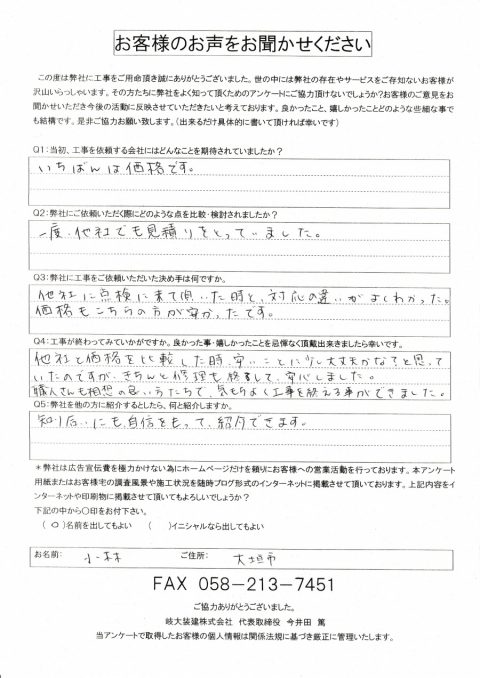 お客様のお声をお聞かせください
この度は弊社に工事をご用命頂き誠にありがとうございました。世の中には弊社の存在やサービスをご存知ないお客様が
沢山いらっしゃいます。その方たちに弊社をよく知って頂くためのアンケートにご協力頂けないでしょうか?お客様のご意見をお
聞かせいただき今後の活動に反映させていただきたいと考えております。良かったこと、嬉しかったことどのような些細な事で
も結構です。是非ご協力お願い致します。(出来るだけ具体的に書いて頂ければ幸いです)
Q1:当初、工事を依頼する会社にはどんなことを期待されていましたか?
いちばんは価格です。
Q2:弊社にご依頼いただく際にどのような点を比較・検討されましたか?
一度、他社でも見積りをとっていました。
Q3:弊社に工事をご依頼いただいた決め手は何ですか。
他社に点検に来て頂いた時と、対応の違いがよくわかった。
価格もこちらの方が安かったです。
Q4:工事が終わってみていかがですか。良かった事・嬉しかったことを忌憚なく頂戴出来きましたら幸いです。
他社と価格を比較した時、安いことに少し大丈夫かな?と思って
いたのですが、きちんと修理も終了して、安心しました。
職人さんも感じの良い方たちで、気もちよく工事を終える事ができました。
Q5:弊社を他の方に紹介するとしたら、何と紹介しますか。
知り合いにも自信をもって、紹介できます。
*弊社は広告宣伝費を極力かけない為にホームページだけを頼りにお客様への営業活動を行っております。本アンケート
用紙またはお客様宅の調査風景や施工状況を随時ブログ形式のインターネットに掲載させて頂いております。上記内容をイ
ンターネットや印刷物に掲載させて頂いてもよろしいでしょうか?
下記の中から〇印をお付下さい。
(〇)名前を出してもよい ( )イニシャルなら出してもよい
お名前: 小森 ご住所: 大垣市
FAX 058-213-7451
ご協力ありがとうございました。
岐大装建株式会社 代表取締役 今井田 篤
当アンケートで取得したお客様の個人情報は関係法規に基づき厳正に管理いたします。